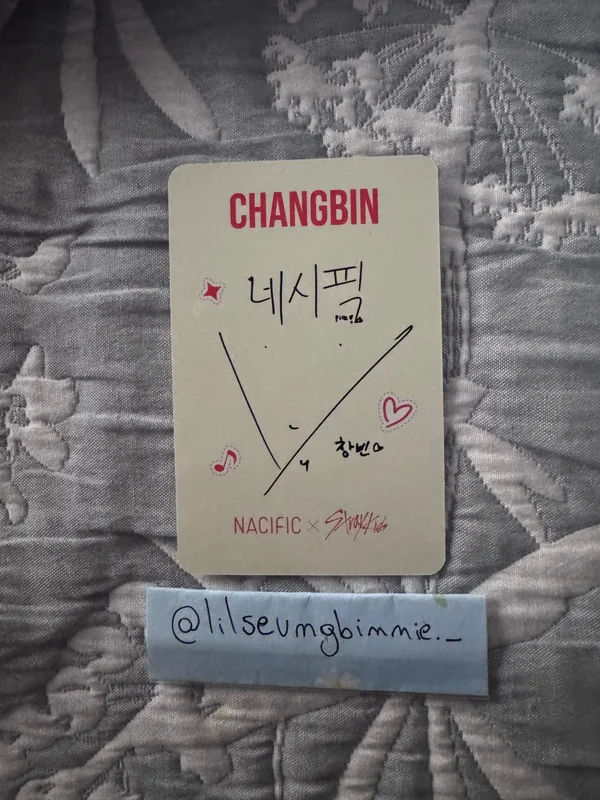 CHANGBIN
네시픽
창빈
NACIFIC × StrayKids
@lilseungbinnie._